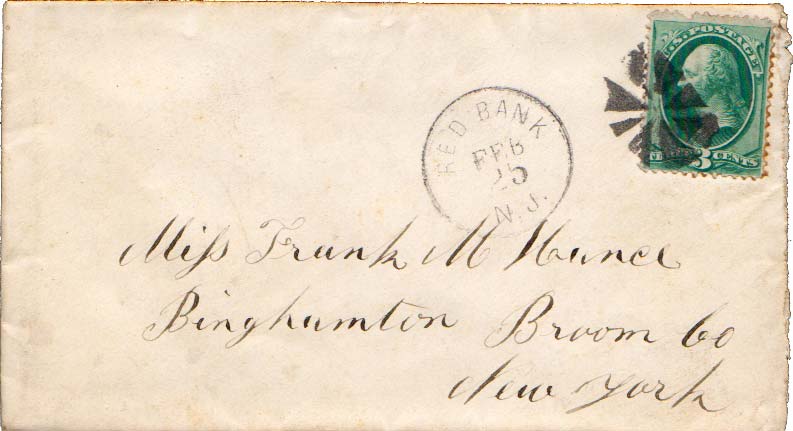 U.S. POSTAGE
3 CENTS
RED BANK
FEB
25
N.J.
Miss Frank M Hance
Binghamton Broom Co
New York